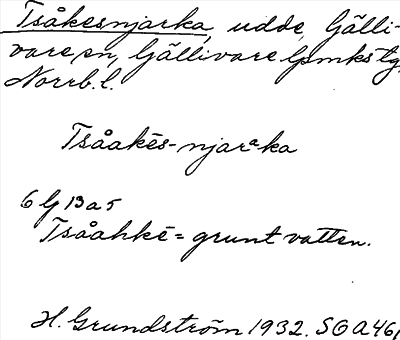 Tsåkesnjarka, udde, Gälli-
vare sn, Gällivare lpmks tg,
Norrb. l.
Tsåakēs-njarᵃka
6 G 13 a 5
Tsåahkē = grunt vatten.
H. Grundström 1932. SOA 461